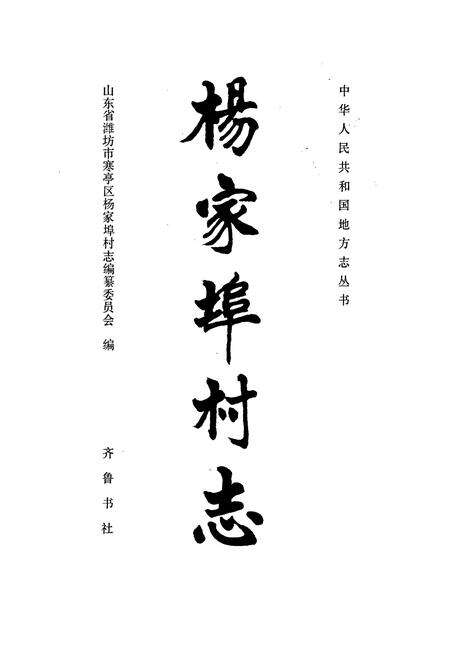 中华人民共和国地方志丛书
楊家埠村志
山东省潍坊市寒亭区杨家埠村志编纂委员会 编
齐鲁书社